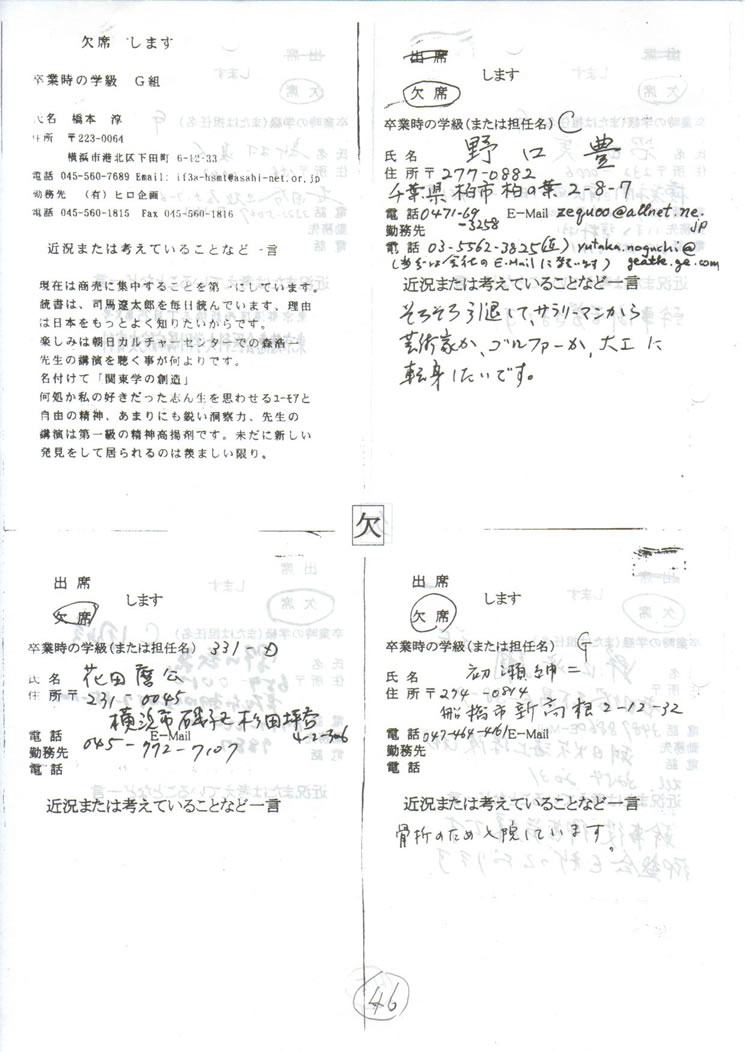 欠席 します
卒業時の学級 G組
氏名 橋本 淳
住所 〒223-0064
横浜市港北区下田町 6-12-33
電話 045-560-7689 Email: if3a-hsmt@asahi-net.or.jp
勤務先 (有)ヒロ企画
電話 045-560-1815 Fax 045-560-1816
近況または考えていることなど一言
現在は商売に集中することを第一にしています。
読書は、司馬遼太郎を毎日読んでいます、理由
は日本をもっとよく知りたいからです。
楽しみは朝日カルチャーセンターでの森浩一
先生の講演を聴く事が何よりです。
名付けて「関東学の創造」
何処か私の好きだった志ん生を思わせるﾕｰﾓｱと
自由の精神、あまりにも鋭い洞察力、先生の
講演は第一級の精神高揚剤です。未だに新しい
発見をして居られるのは羨ましい限り。
出席
します
欠席
卒業時の学級(または担任名) C
氏名 野口 豊
住所 〒277-0882
千葉県柏市柏の葉2-8-7
電話 0471-69-3258 E-Mail zequoo@allnet.ne.jp
勤務先
電話 03-5562-3825(直) yutaka.noguchi@
(当分は会社のE.Mailに覧います) geatk.ge.com
近況または考えていることなど一言
そろそろ引退して、サラリーマンから
芸術家か、ゴルファーか、大工に
転身したいです。
欠
出席
します
欠席
卒業時の学級(または担任名) 331-D
氏名 花田 麿公
住所 〒231-0045
横浜市磯子区杉田坪呑
電話 E-Mail 4-2-306
勤務先 045-772-7107
電話
近況または考えていることなど一言
出席
します
欠席
卒業時の学級(または担任名) G
氏名 初瀬紳二
住所 〒274-0814
船橋市新高根2-12-32
電話 047-464-4161 E-Mail
勤務先
電話
近況または考えていることなど一言
骨折のため入院しています。
46